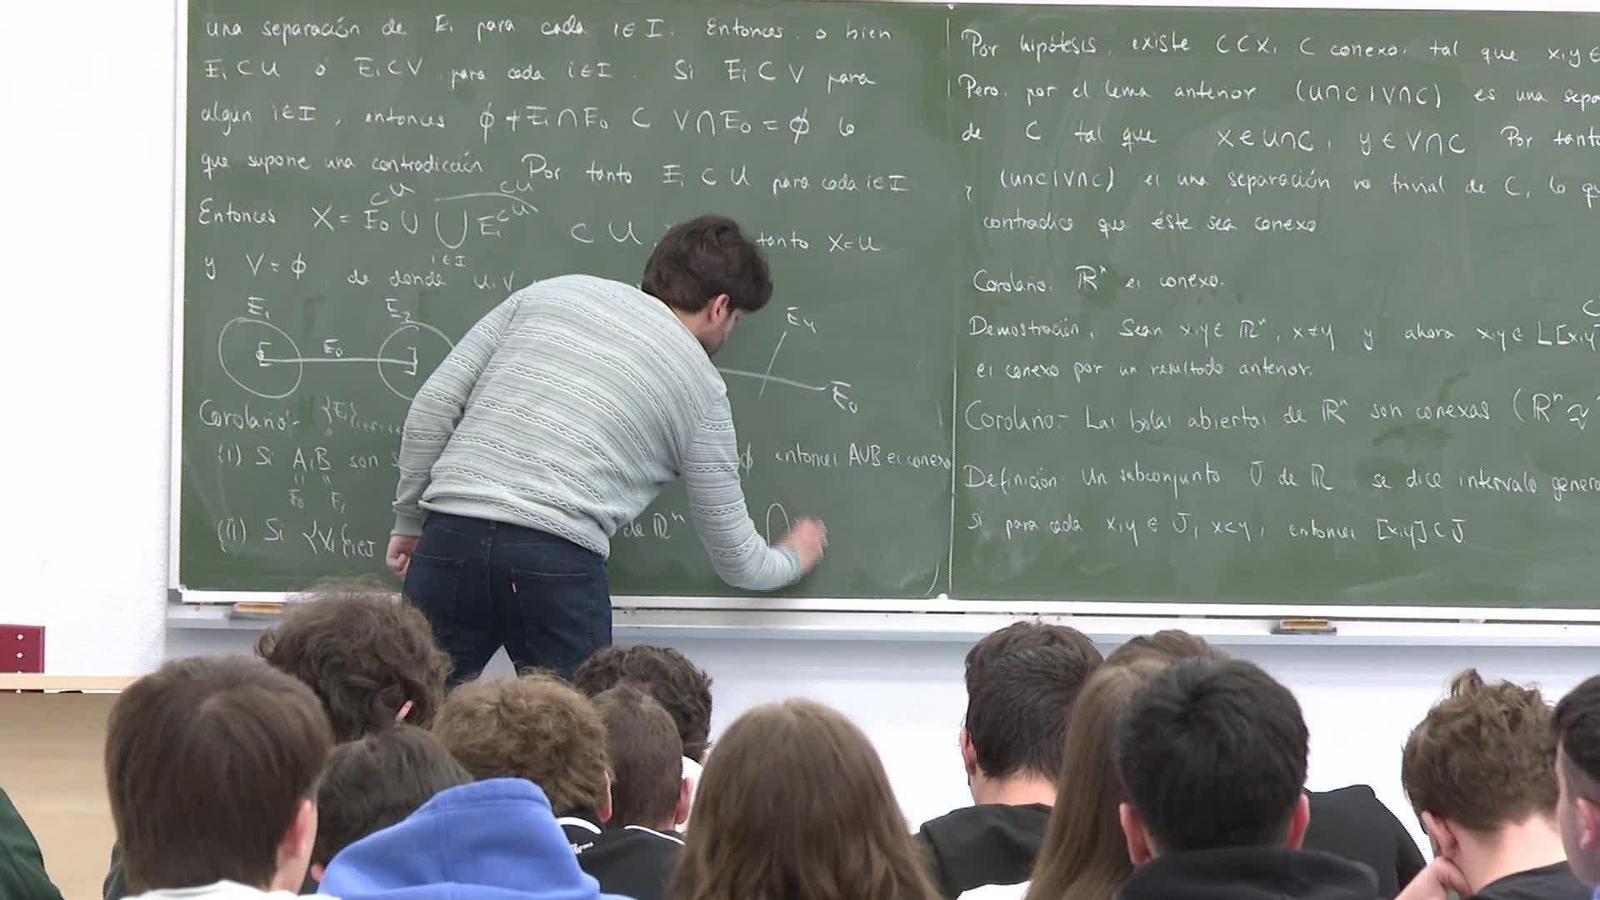 una separación de Ei para cada i∈I. Entonces, o bien
Ei⊂U ó Ei⊂V para cada i∈I. Si Ei⊂V para
algún i∈I, entonces ∅≠Ei∩E0 ⊂ V∩E0=∅ lo
que supone una contradicción Por tanto Ei⊂U para cada i∈I
⊂U ⊂U
Entonces X=E0∪⋃Ei ⊂U ⊂U, tanto X=U
i∈I
y V=∅ de donde U,V
E1 E2 E4
E0
E0
Corolario.- {Ei}
(i) Si A,B son ∅ entonces A∪B es conexo
E0 E1
(ii) Si {Vi}i∈J de ℝⁿ ⋂
Por hipótesis, existe C⊂X, C conexo, tal que x,y∈
Pero, por el lema anterior (U∩C|V∩C) es una sepa
de C tal que x∈U∩C, y∈V∩C Por tanto
(U∩C|V∩C) es una separación no trivial de C, lo qu
contradice que éste sea conexo
Corolario. ℝⁿ es conexo.
Demostración, Sean x,y∈ℝⁿ, x≠y y ahora x,y∈L[x,y]
es conexo por un resultado anterior.
Corolario.- Las bolas abiertas de ℝⁿ son conexas (ℝⁿ≈
Definición Un subconjunto J de ℝ se dice intervalo genera
si para cada x,y∈J, x<y, entonces [x,y]⊂J